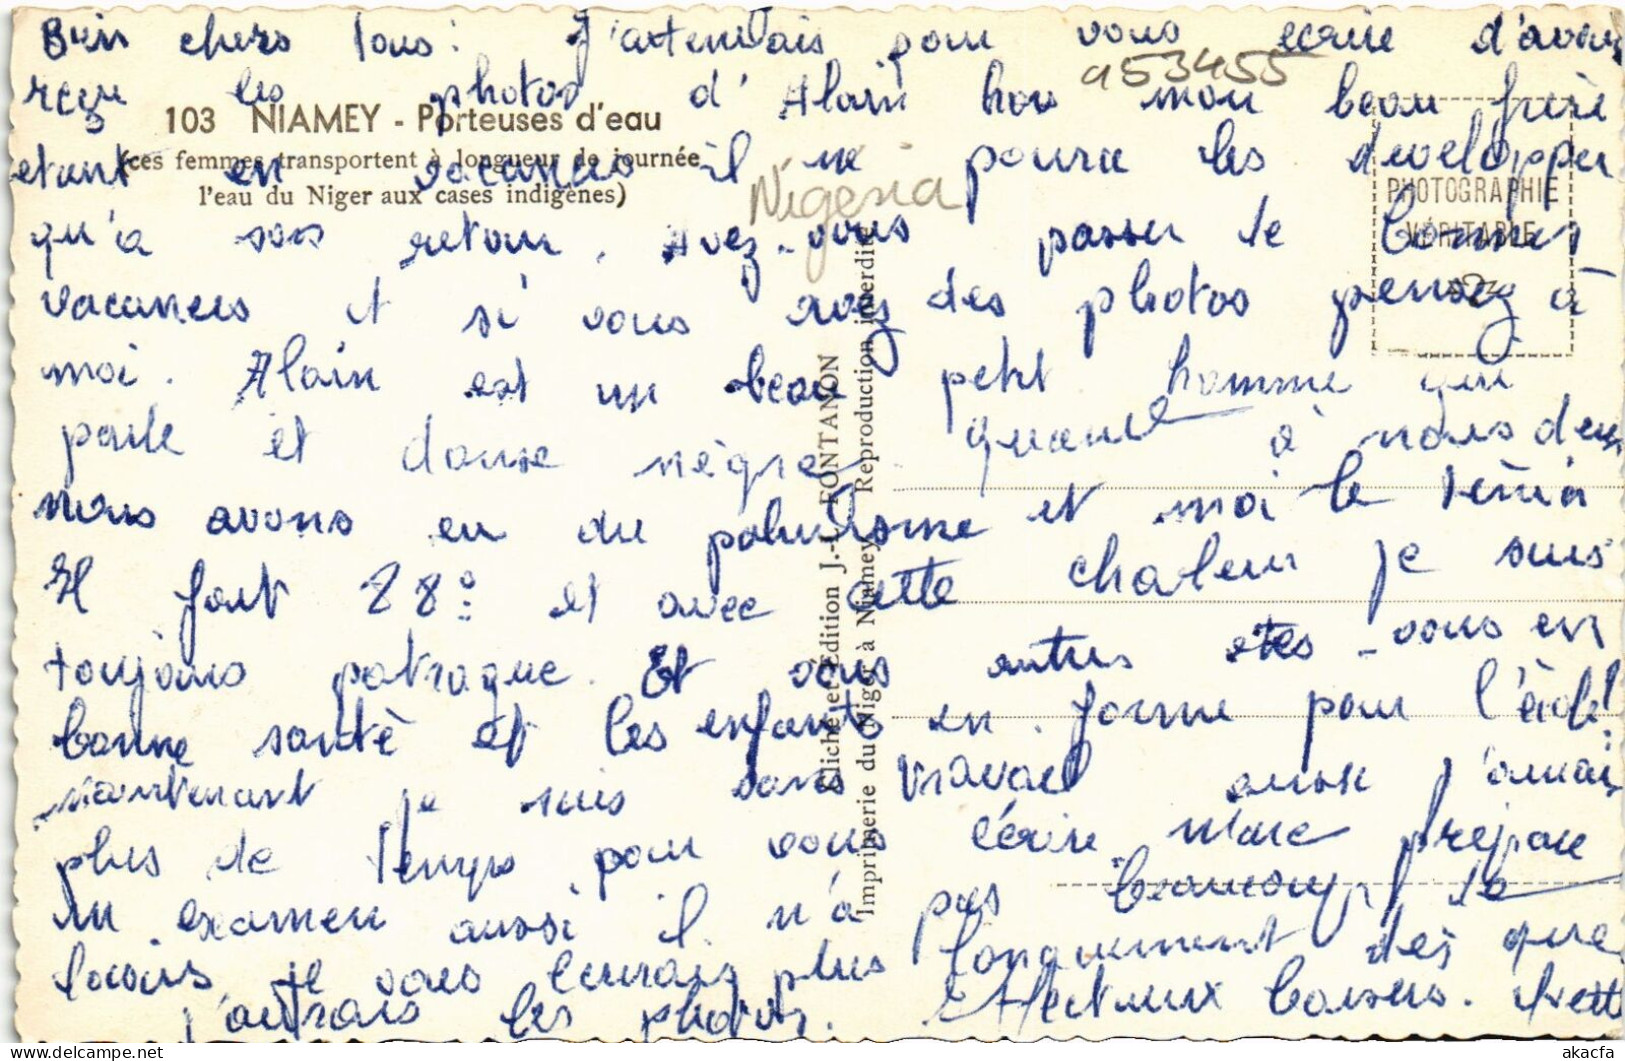 Bien chers tous: J'attendais pour vous écrire d'avoir
reçu les photos d'Alain hors mon beau frère
étant en vacances il ne pourra les developper
qu'a son retour. Avez-vous passer de bonnes
vacances et si vous avez des photos pensez à
moi. Alain est un beau petit homme qui
parle et danse nègre quant à nous deux
nous avons eu du paludisme et moi le ténia
Il fait 28° et avec cette chaleur je suis
toujours patraque. Et vous autres êtes-vous en
bonne santé et les enfants en forme pour l'école!
maintenant je suis sans travail aussi j'aurai
plus de temps pour vous écrire. Marc prépare
un examen aussi il n'a pas beaucoup de
loisirs je vous écrirais plus longuement dès que
j'aurais les photos. Affectueux baisers. Yvette
953455
Nigeria
103 NIAMEY - Porteuses d'eau
(ces femmes transportent à longueur de journée
l'eau du Niger aux cases indigènes)
PHOTOGRAPHIE
VÉRITABLE
Cliché et Edition J.-L. FONTANON
Imprimerie du Niger à Niamey Reproduction interdite
akacfa
delcampe.net